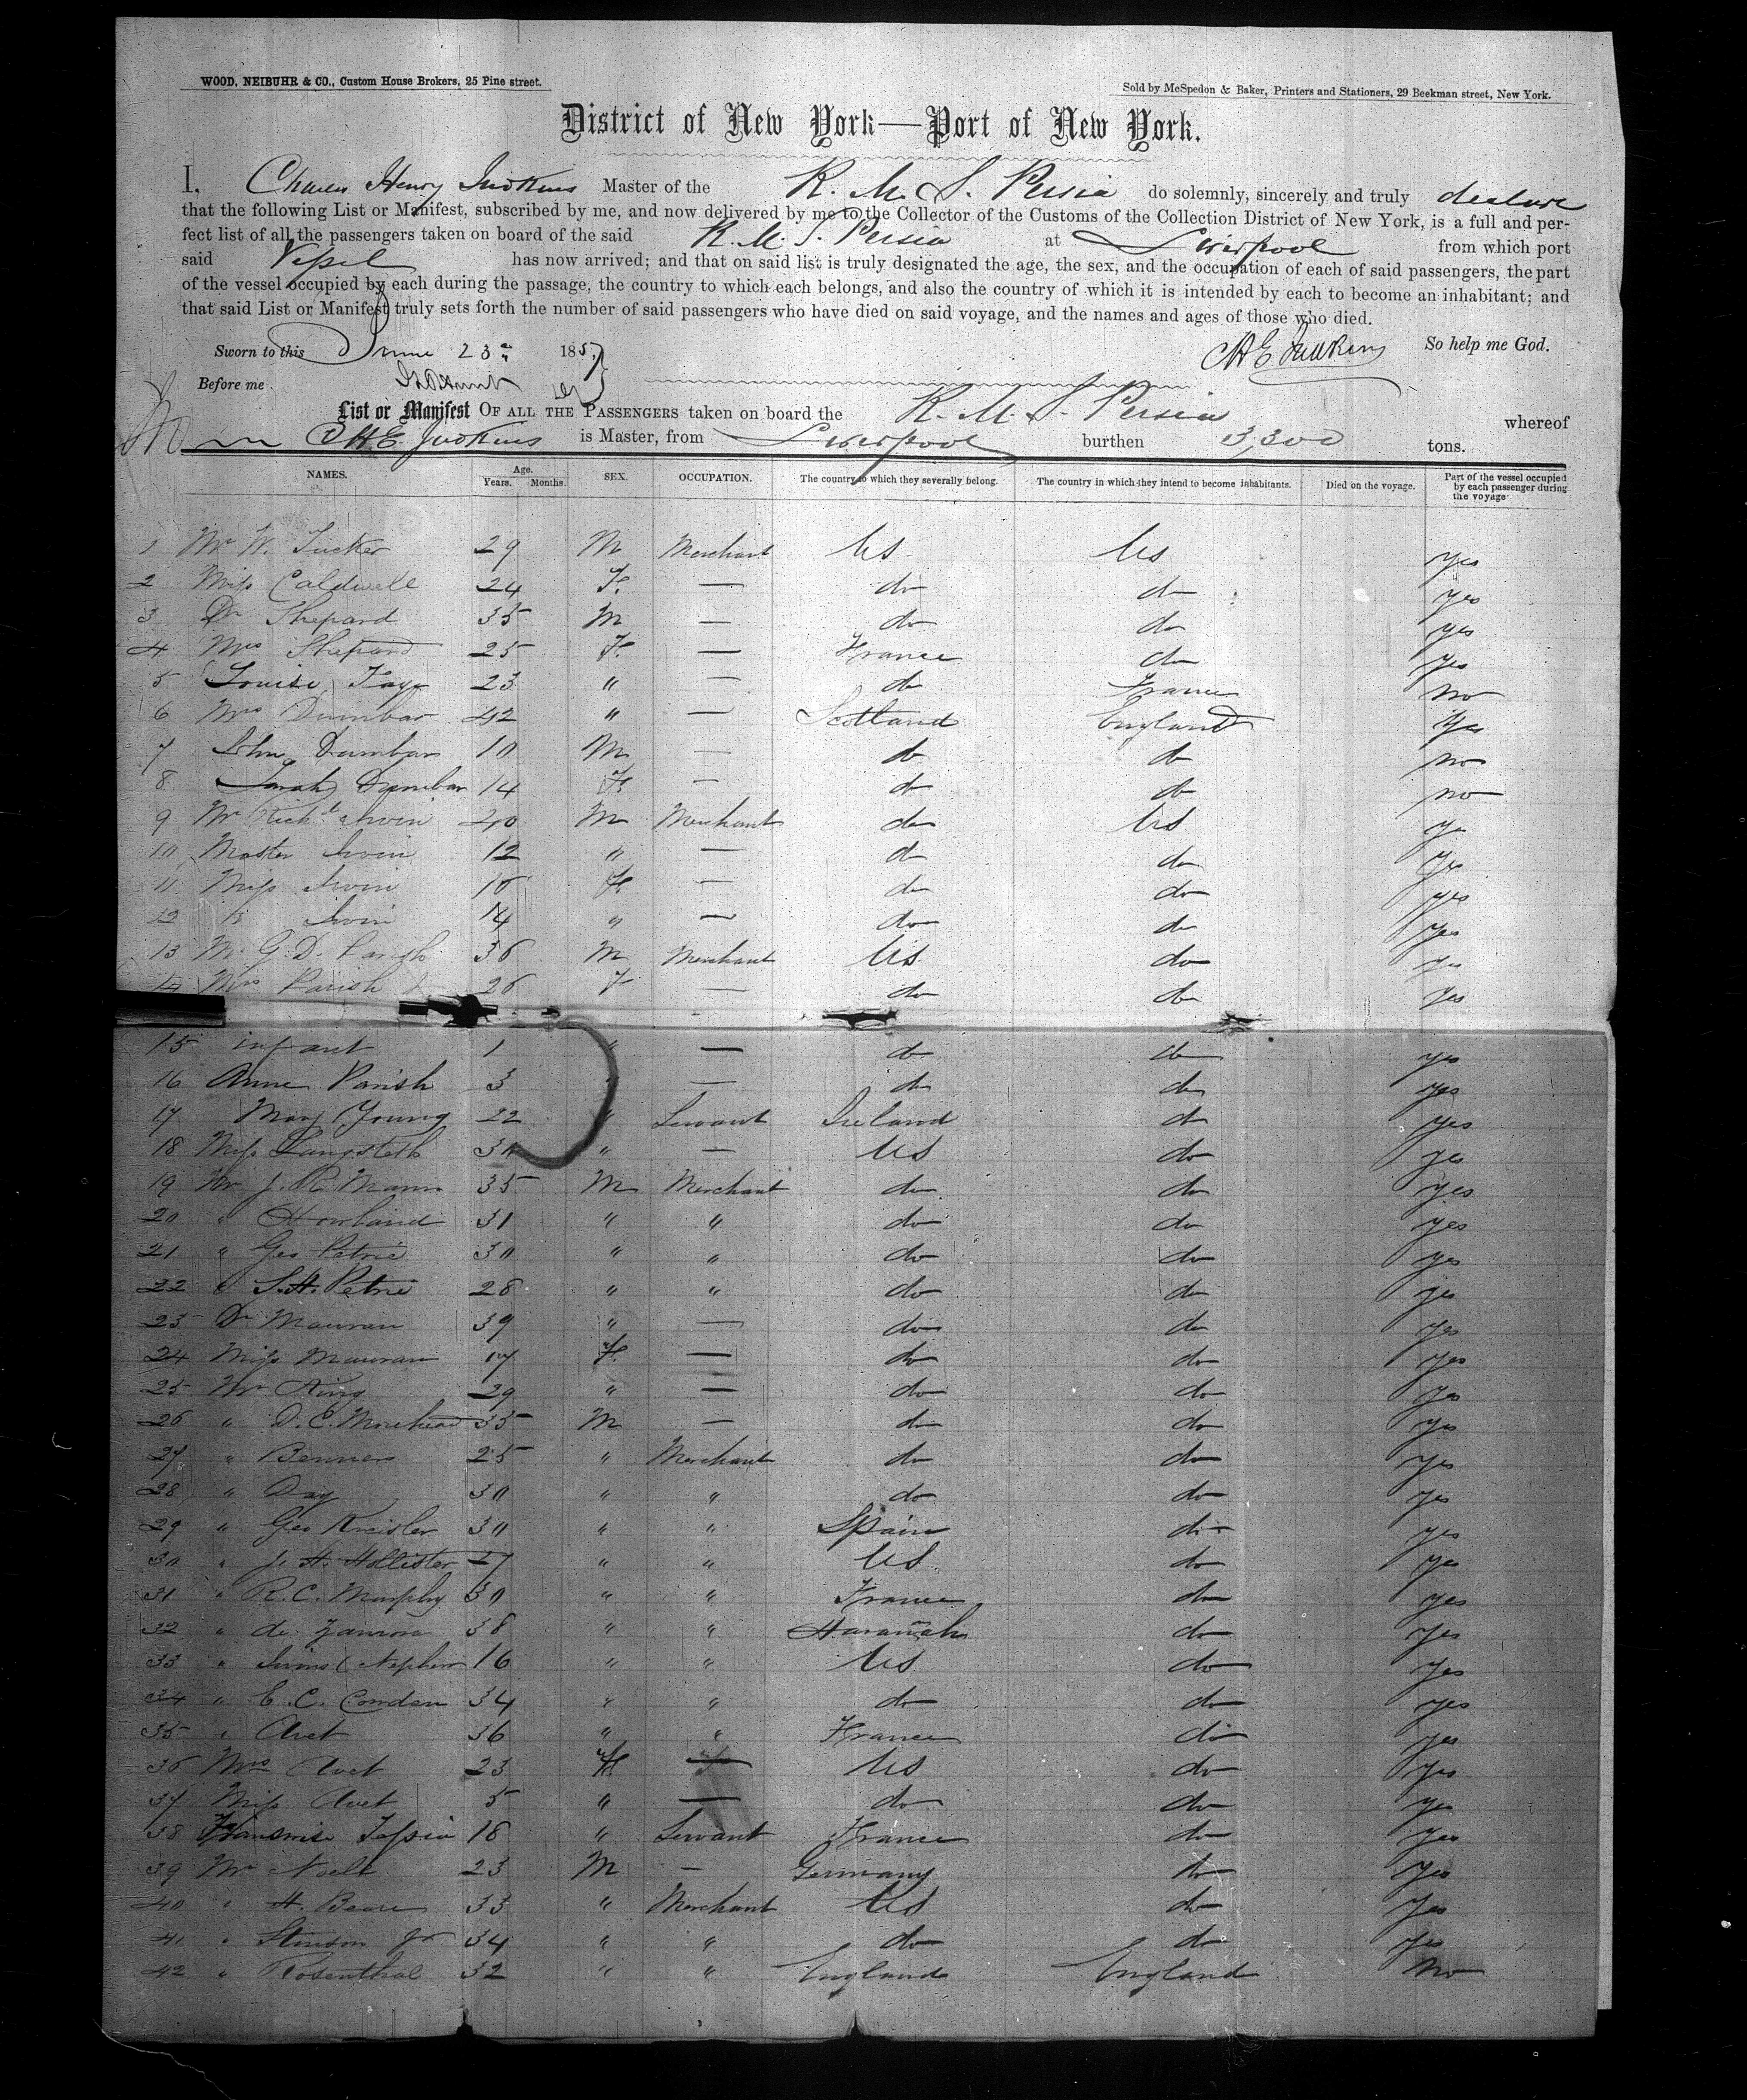 WOOD, NEIBUHR & CO., Custom House Brokers, 25 Pine street.
Sold by McSpedon & Baker, Printers and Stationers, 29 Beekman street, New York.
District of New York—Port of New York.
I, Charles Henry Judkins Master of the R. M. S. Persia do solemnly, sincerely and truly declare
that the following List or Manifest, subscribed by me, and now delivered by me to the Collector of the Customs of the Collection District of New York, is a full and per-
fect list of all the passengers taken on board of the said R. M. S. Persia at Liverpool from which port
said Vessel has now arrived; and that on said list is truly designated the age, the sex, and the occupation of each of said passengers, the part
of the vessel occupied by each during the passage, the country to which each belongs, and also the country of which it is intended by each to become an inhabitant; and
that said List or Manifest truly sets forth the number of said passengers who have died on said voyage, and the names and ages of those who died.
Sworn to this June 23 1857 CHE Judkins So help me God.
Before me
List or Manifest OF ALL THE PASSENGERS taken on board the R. M. S. Persia whereof
CHE. Judkins is Master, from Liverpool burthen 3,300 tons.
NAMES. Age. Years. Months. SEX. OCCUPATION. The country to which they severally belong. The country in which they intend to become inhabitants. Died on the voyage. Part of the vessel occupied by each passenger during the voyage
1 Mr W. Tucker 29 M Merchant US US yes
2 Miss Caldwell 24 F. — do do yes
3 Dr Shepard 35 M — do do yes
4 Mrs Shepard 25 F. — France do yes
5 Louise 23 " — do France no
6 Mrs Dunbar 42 " — Scotland England yes
7 John Dunbar 10 M — do do no
8 Sarah Dunbar 14 F — do do no
9 Mr Richd Irvin 40 M Merchant do US ye
10 Master Irvin 12 " — do do yes
11 Miss Irvin F. — do do yes
12 " Irvin 14 " — do do yes
13 Mr G. D. Parish 36 M Merchant US do yes
14 Mrs Parish 26 F — do do yes
15 infant 1 " — do do yes
16 Anne Parish 3 " — do do yes
17 Mary Young 22 " Servant Ireland do yes
18 Miss Langsteth 30 " — US do yes
19 Mr J. R. Mann 35 M Merchant do do yes
20 " Howland 31 " " do do yes
21 " Geo Petrie 30 " " do do yes
22 " S. H. Petrie 28 " " do do yes
23 Dr Mauran 39 " — do do yes
24 Miss Mauran 17 F. — do do yes
25 Mr King 29 " — do do yes
26 " D. C. Morehead 35 M — do do yes
27 " Benners 25 " Merchant do do yes
28 " Day 30 " " do do yes
29 " Geo Kreisler 30 " " Spain do yes
30 " J. H. Hollister 27 " " US do yes
31 " R. C. Murphy 30 " " France do yes
32 " de 38 " " Havanah do yes
33 " Irvins (Nephew 16 " " US do yes
34 " E. C. Cowden 34 " " do do yes
35 " Avet 36 " " France do yes
36 Mrs Avet 23 F. — US do yes
37 Miss Avet 5 " — do do yes
38 Tessia 18 " Servant France do yes
39 Mr Noelt 23 M — Germany do yes
40 " H. Beare 33 " Merchant US do yes
41 " Stinson Jr 34 " " do do yes
42 " Rosenthal 32 " " England England no